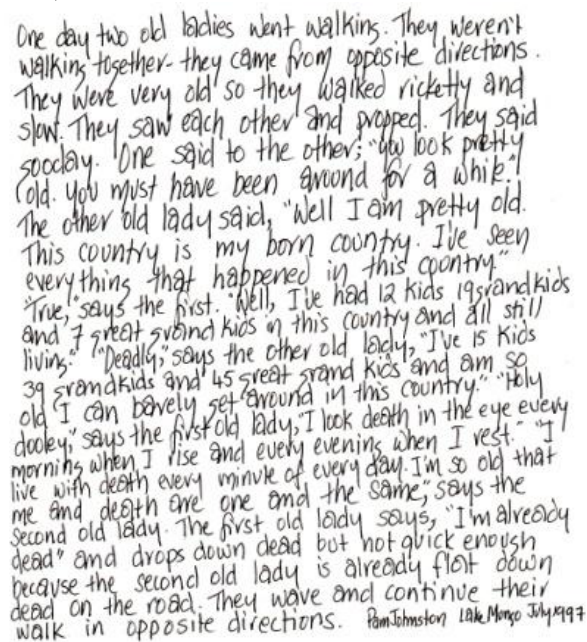 One day two old ladies went walking. They weren't
walking together - they came from opposite directions.
They were very old so they walked ricketty and
slow. They saw each other and propped. They said
gooday. One said to the other; "you look pretty
old. you must have been around for a while."
The other old lady said, "Well I am pretty old.
This country is my born country. I've seen
everything that happened in this country."
"True," says the first. "Well, I've had 12 kids 19 grandkids
and 7 great grand kids in this country and all still
living." "Deadly," says the other old lady, "I've 15 kids
39 grandkids and 45 great grand kids and am so
old I can barely get around in this country." "Holy
dooley," says the first old lady, "I look death in the eye every
morning when I rise and every evening when I rest." "I
live with death every minute of every day. I'm so old that
me and death are one and the same," says the
second old lady. The first old lady says, "I'm already
dead" and drops down dead but not quick enough
because the second old lady is already flat down
dead on the road. They wave and continue their
walk in opposite directions. Pam Johnston Lake Mungo July 1997